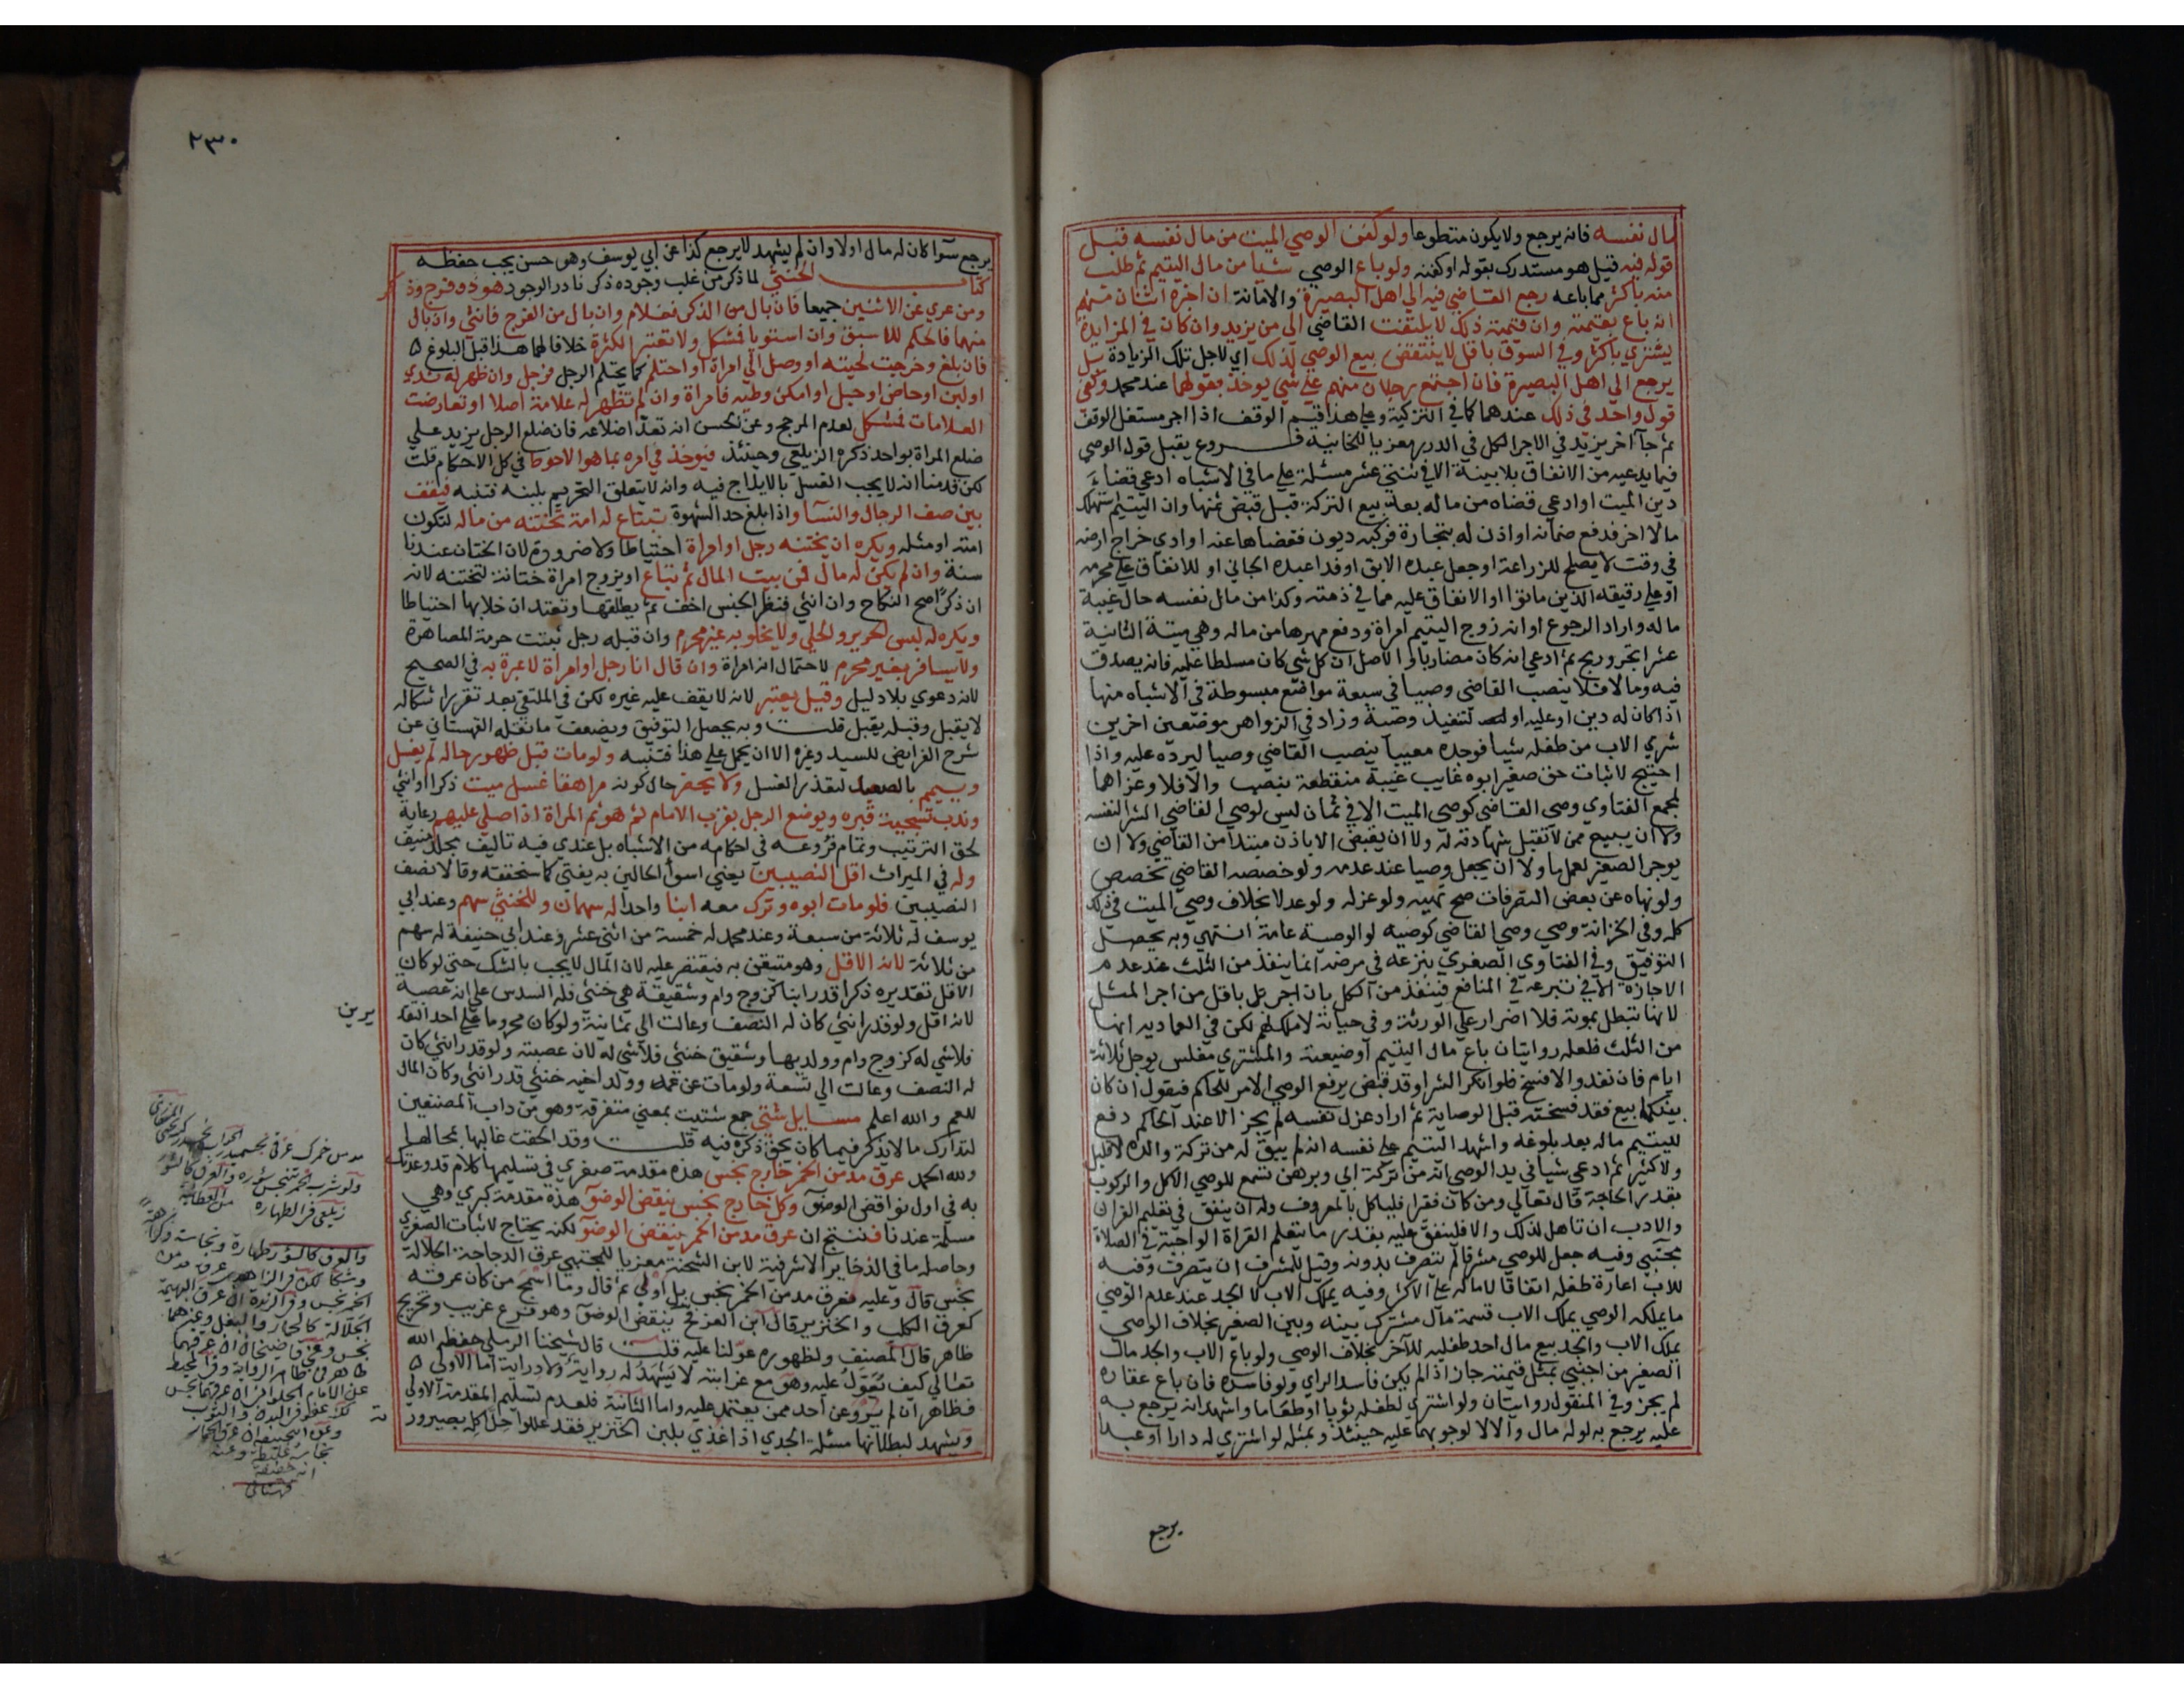 مال نفسه فانه يرجع ولا يكون متطوعا ولو كفن الوصي الميت من مال نفسه قبل
قوله فيه قيل هو مستدرك بقوله او كفنه ولو باع الوصي شيأ من مال اليتيم ثم طلب
منه باكثر مما باعه رجع القاضي فيه الي اهل البصيرة والامانة ان اخبره اثنان منهم
انه باع بقيمته وان قيمته ذلك لا يلتفت القاضي الي من يزيد وان كان في المزايدة
يشتري باكثر وفي السوق باقل لا ينتقض بيع الوصي لذلك اي لاجل تلك الزيادة بل
يرجع الي اهل البصيرة فان اجتمع رجلان منهم علي شي يوخذ بقولهما عند محمد وكفي
قول واحد في ذلك عندهما كما في التزكية وعلي هذا قيم الوقف اذا اجر مستغل الوقف
ثم جآ اخر يزيد في الاجر الكل في الدرر معزيا للخانية فـروع يقبل قول الوصي
فيما يدعيه من الانفاق بلا بينة الا في ثنتي عشر مسئلة علي ما في الاشباه ادعي قضاء
دين الميت او ادعي قضاه من ماله بعد بيع التركة قبل قبض ثمنها وان اليتيم استهلك
مالا اخر فدفع ضمانه او اذن له بتجارة فركبه ديون فقضاها عنه او ادي خراج ارضه
في وقت لا يصلح للزراعة او جعل عبده الابق او فدا عبده الجاني او للانفاق علي محرمه
او علي رقيقه الذين ماتوا او الانفاق عليه مما في ذمته وكذا من مال نفسه حال غيبة
ماله واراد الرجوع او انه زوج اليتيم امراة ودفع مهرها من ماله وهي ميتة الثانية
عشر اتجر وربح ثم ادعي انه كان مضاربا والاصل ان كل شي كان مسلطا عليه فانه يصدق
فيه وما لا فلا ينصب القاضي وصيا في سبعة مواضع مبسوطة في الاشباه منها
اذا كان له دين او عليه او لتنفيذ وصية وزاد في الزواهر موضعين اخرين
شري الاب من طفله شيأ فوجده معيبا ينصب القاضي وصيا ليرده عليه واذا
احتيج لاثبات حق صغير ابوه غايب غيبة منقطعة ينصب والا فلا وعزاهما
لمجمع الفتاوي وصي القاضي كوصي الميت الا في ثمان ليس لوصي القاضي الشرا لنفسه
ولا ان يبيع ممن لا تقبل شهادته له ولا ان يقبض الا باذن مبتدا من القاضي ولا ان
يوجر الصغير لعمل ما ولا ان يجعل وصيا عند عدمه ولو خصصه القاضي تخصص
ولو نهاه عن بعض التصرفات صح نهيه ولو عزله ولو عدلا بخلاف وصي الميت في ذلك
كله وفي الخزانة وصي وصي القاضي كوصيه لو الوصية عامة انتهي وبه يحصل
التوفيق وفي الفتاوي الصغري تبرعه في مرضه انما ينفذ من الثلث عند عدم
الاجازة الا في تبرعه في المنافع فينفذ من الكل بان اجر باقل من اجر المثل
لانها تبطل بموته فلا اضرار علي الورثة وفي حياته لا ملك لهم لكن في العمادية انها
من الثلث فلعله روايتان باع مال اليتيم او ضيعته والمشتري مفلس يوجل ثلاثة
ايام فان نقد والا فسخ فلو انكر الشرا وقد قبض يرفع الوصي الامر للحاكم فيقول ان كان
بينكما بيع فقد فسخته قبل الوصاية ثم اراد عزل نفسه لم يجز الا عند الحاكم دفع
لليتيم ماله بعد بلوغه واشهد اليتيم علي نفسه انه لم يبق له من تركة والده لا قليل
ولا كثير ثم ادعي شيا في يد الوصي انه من تركة ابي وبرهن تسمع للوصي الاكل والركوب
بقدر الحاجة قال تعالي ومن كان فقيرا فلياكل بالمعروف وله ان ينفق في تعليم القران
والادب ان تاهل لذلك والا فلينفق عليه بقدر ما يتعلم القراة الواجبة في الصلاة
مجتبي وفيه جعل للوصي مشرفا لم يتصرف بدونه وقيل للمشرف ان يتصرف وفيه
للاب اعارة طفله اتفاقا لا ماله علي الاكثر وفيه يملك الاب لا الجد عند عدم الوصي
ما يملكه الوصي يملك الاب قسمة مال مشترك بينه وبين الصغير بخلاف الوصي
يملك الاب والجد بيع مال احد طفليه للآخر بخلاف الوصي ولو باع الاب والجد مال
الصغير من اجنبي بمثل قيمته جاز اذا لم يكن فاسد الراي ولو فاسده فان باع عقاره
لم يجز وفي المنقول روايتان ولو اشتري لطفله ثوبا او طعاما واشهد انه يرجع به
عليه يرجع به لو له مال والا لا لوجوبهما عليه حينئذ وبمثله لو اشتري له دارا او عبدا
يرجع
٢٣٠
يرجع سوآ كان له مال اولا وان لم يشهد لا يرجع كذا عن ابي يوسف وهو حسن يجب حفظه
كتاب الخنثي لما ذكر من غلب وجوده ذكر نادر الوجود هو ذو فرج وذكر
ومن عري عن الاثنين جميعا فان بال من الذكر فغلام وان بال من الفرج فانثي وان بال
منهما فالحكم للاسبق وان استويا فمشكل ولا تعتبر الكثرة خلافا لهما هذا قبل البلوغ
فان بلغ وخرجت لحيته او وصل الي امراة او احتلم كما يحتلم الرجل فرجل وان ظهر له ثدي
او لبن او حاض او حبل او امكن وطيه فامراة وان لم تظهر له علامة اصلا او تعارضت
العلامات فمشكل لعدم المرجح وعن الحسن انه تعد اضلاعه فان ضلع الرجل يزيد علي
ضلع المراة بواحد ذكره الزيلعي وحينئذ فيوخذ في امره بما هو الاحوط في كل الاحكام قلت
لكن قدمنا انه لا يجب الغسل بالايلاج فيه وانه لا يتعلق التحريم بلبنه فتنبه فيقف
بين صف الرجال والنسآ واذا بلغ حد الشهوة تبتاع له امة تختنه من ماله لتكون
امته او مثله ويكره ان يختنه رجل او امراة احتياطا ولا ضرورة لان الختان عندنا
سنة وان لم يكن له مال فمن بيت المال ثم تباع او يزوج امراة ختانة لتختنه لانه
ان ذكرا صح النكاح وان انثي فنظر الجنس اخف ثم يطلقها وتعتد ان خلا بها احتياطا
ويكره له لبس الحرير والحلي ولا يخلو به غير محرم وان قبله رجل ثبتت حرمة المصاهرة
ولا يسافر بغير محرم لاحتمال انه امراة وان قال انا رجل او امراة لا عبرة به في الصحيح
لانه دعوي بلا دليل وقيل يعتبر لانه لا يقف عليه غيره لكن في الملتقي بعد تقرر اشكاله
لا يقبل وقبله يقبل قلت وبه يحصل التوفيق ويضعف ما نقله القهستاني عن
شرح الفرايض للسيد وغيره الا ان يحمل علي هذا فتنبه ولو مات قبل ظهور حاله لم يغسل
وييمم بالصعيد لتعذر الغسل ولا يحضر حال كونه مراهقا غسل ميت ذكرا او انثي
وندب تسجية قبره ويوضع الرجل بقرب الامام ثم هو ثم المراة اذا صلي عليهم رعاية
لحق الترتيب وتمام فروعه في احكامه من الاشباه بل عندي فيه تاليف مجلد منيف
وله في الميراث اقل النصيبين يعني اسوأ الحالين به يفتي كما سنحققه وقالا نصف
النصيبين فلو مات ابوه وترك معه ابنا واحدا له سهمان وللخنثي سهم وعند ابي
يوسف له ثلاثة من سبعة وعند محمد له خمسة من اثني عشر وعند ابي حنيفة له سهم
من ثلاثة لانه الاقل وهو متيقن به فيقتصر عليه لان المال لا يجب بالشك حتي لو كان
الاقل تقديره ذكرا قدر ابنا كزوج وام وشقيقة هي خنثي فله السدس علي انه عصبة
لانه اقل ولو قدر انثي كان له النصف وعالت الي ثمانية ولو كان محروما علي احد التقد
يرين
فلا شي له كزوج وام وولديها وشقيق خنثي فلا شي له لان عصبة ولو قدر انثي كان
له النصف وعالت الي تسعة ولو مات عن عمه وولد اخيه خنثي قدر انثي وكان المال
للعم والله اعلم مسايل شتي جمع شتيت بمعني متفرقة وهو من داب المصنفين
لتدارك ما لا يذكر فيما كان يحق ذكره فيه قلت وقد الحقت غالبها بمحالها
ولله الحمد عرق مدمن الخمر خارج نجس هذه مقدمة صغري في تسليمها كلام قد وعدتك
به في اول نواقض الوضوء وكل خارج نجس ينقض الوضوء هذه مقدمة كبري وهي
مسلمة عندنا فتنتج ان عرق مدمن الخمر ينقض الوضوء لكنه يحتاج لاثبات الصغري
وحاصله ما في الذخاير الاشرفية لابن الشحنة معزيا للمجتبي عرق الدجاجة الجلالة
نجس قال وعليه فعرق مدمن الخمر نجس بل اولي ثم قال وما اسمج من كان عرقه
كعرق الكلب والخنزير قال ابن العز فح ينقض الوضوء وهو فرع غريب وتخريج
ظاهر قال المصنف ولظهوره عولنا عليه قلت قال شيخنا الرملي حفظه الله
تعالي كيف يعول عليه وهو مع غرابته لا يشهد له رواية ولا دراية اما الاولي
فظاهر ان لم يرو عن احد ممن يعتمد عليه واما الثانية فلعدم تسليم المقدمة الاولي
ويشهد لبطلانها مسئلة الجدي اذا غذي بلبن الخنزير فقد عللوا حل اكله بصيرورته